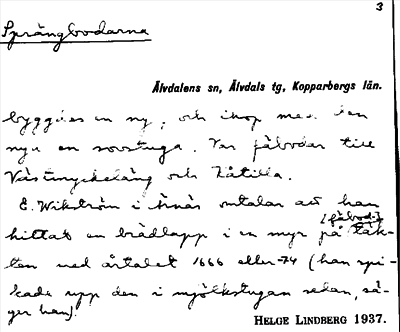 3
Sprängbodarna
Älvdalens sn, Älvdals tg, Kopparbergs län.
byggdes en ny, och ihop med den
nya en sovstuga. Var fäbodar till
Västmyckeläng och Låtilla.
E. Wikström i Åsnäs omtalar att han
hittat en brädlapp i en myr på [fäbod-] täk-
ten med årtalet 1666 eller -74 (han spi-
kade upp den i mjölkstugan sedan, sä-
ger han).
HELGE LINDBERG 1937.